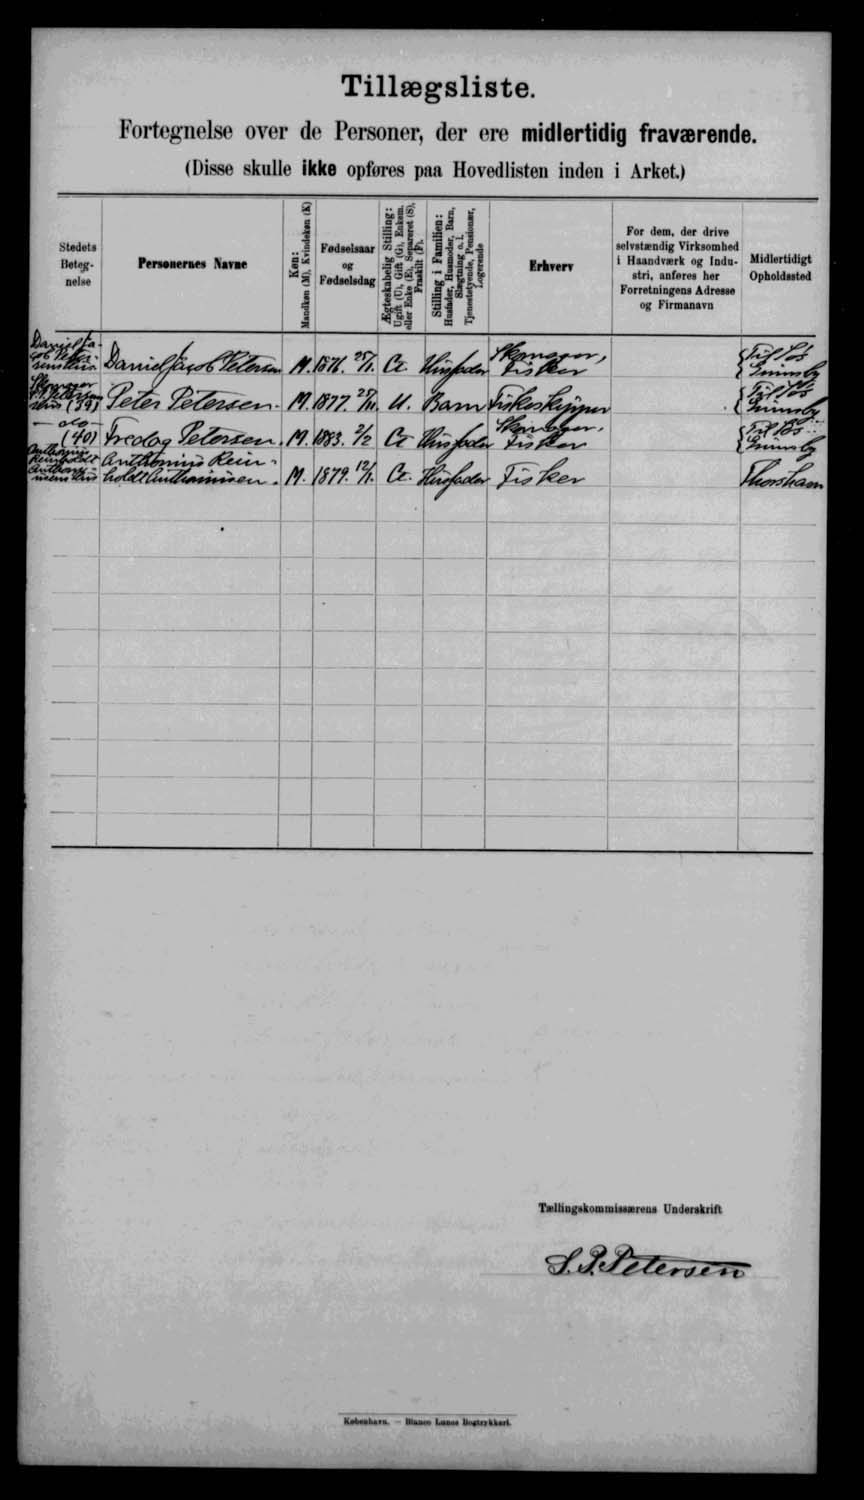 Tillægsliste.
Fortegnelse over de Personer, der ere midlertidig fraværende.
(Disse skulle ikke opføres paa Hovedlisten inden i Arket.)
Stedets Beteg-nelse
Personernes Navne
Køn:
Mandkøn (M), Kvindekøn (K)
Fødselsaar
og
Fødselsdag
Ægteskabelig Stilling:
Ugift (U), Gift (G), Enkem.
eller Enke (E), Separeret (S),
Fraskilt (F).
Stilling i Familien:
Husfader, Husmoder, Barn,
Slægtning o. l.
Tjenestetyende, Pensionær,
Logerende
Erhverv
For dem, der drive
selvstændig Virksomhed
i Haandværk og Indu-
stri, anføres her
Forretningens Adresse
og Firmanavn
Midlertidigt
Opholdssted
Daniel Ja-
cob Peter-
sens Hus. Daniel Jacob Petersen M. 1876. 25/1. G. Husfader Skomager, Fisker { Til Søs Grimsby
Skomager
Petersens
Hus (39) Peter Petersen. M. 1877. U. Barn Fiskeskipper { Til Søs Grimsby
— do —
(40) Fredag Petersen. M. 1883. 2/2 G. Husfader Skomager, Fisker { Til Søs Grimsby
Anthonius
Reinholdt
Anthoni-
sens Hus Anthonius Rein-
holdt M. 1879. 12/1. G. Husfader Fisker Thorshavn
Tællingskommissærens Underskrift
S. P. Petersen
København. — Bianco Lunos Bogtrykkeri.